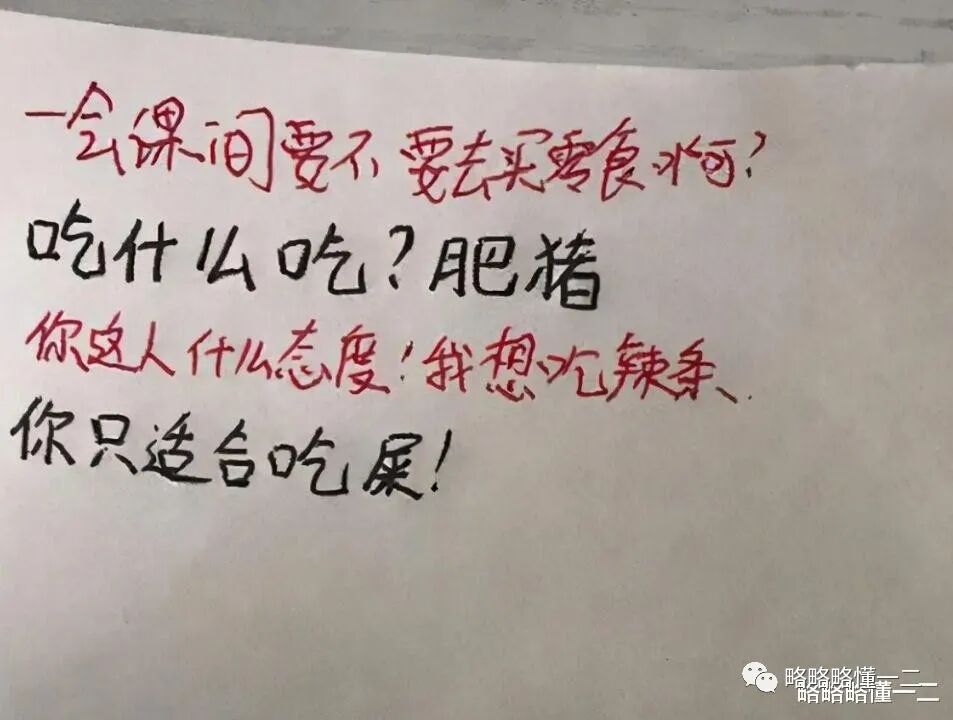 一会课间要不要去买零食啊？
吃什么吃？肥猪
你这人什么态度！我想吃辣条
你只适合吃屎！
略略略懂一二
略略略懂一二